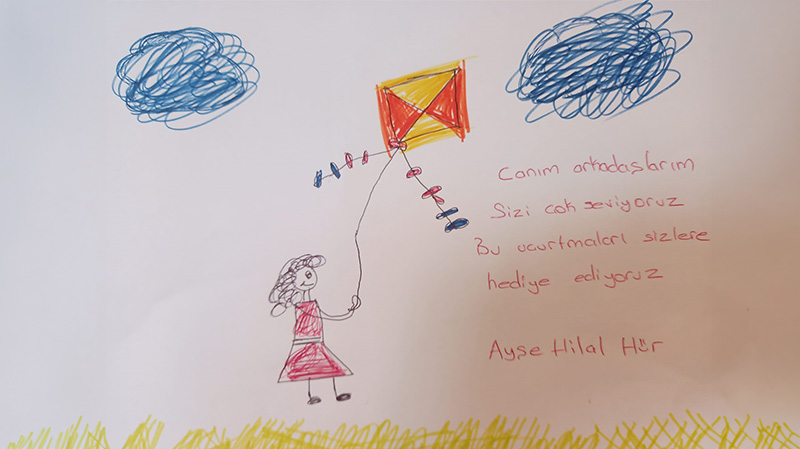 Canım arkadaşlarım
Sizi cok seviyoruz
Bu ucurtmaları sizlere
hediye ediyoruz
Ayse Hilal Hür